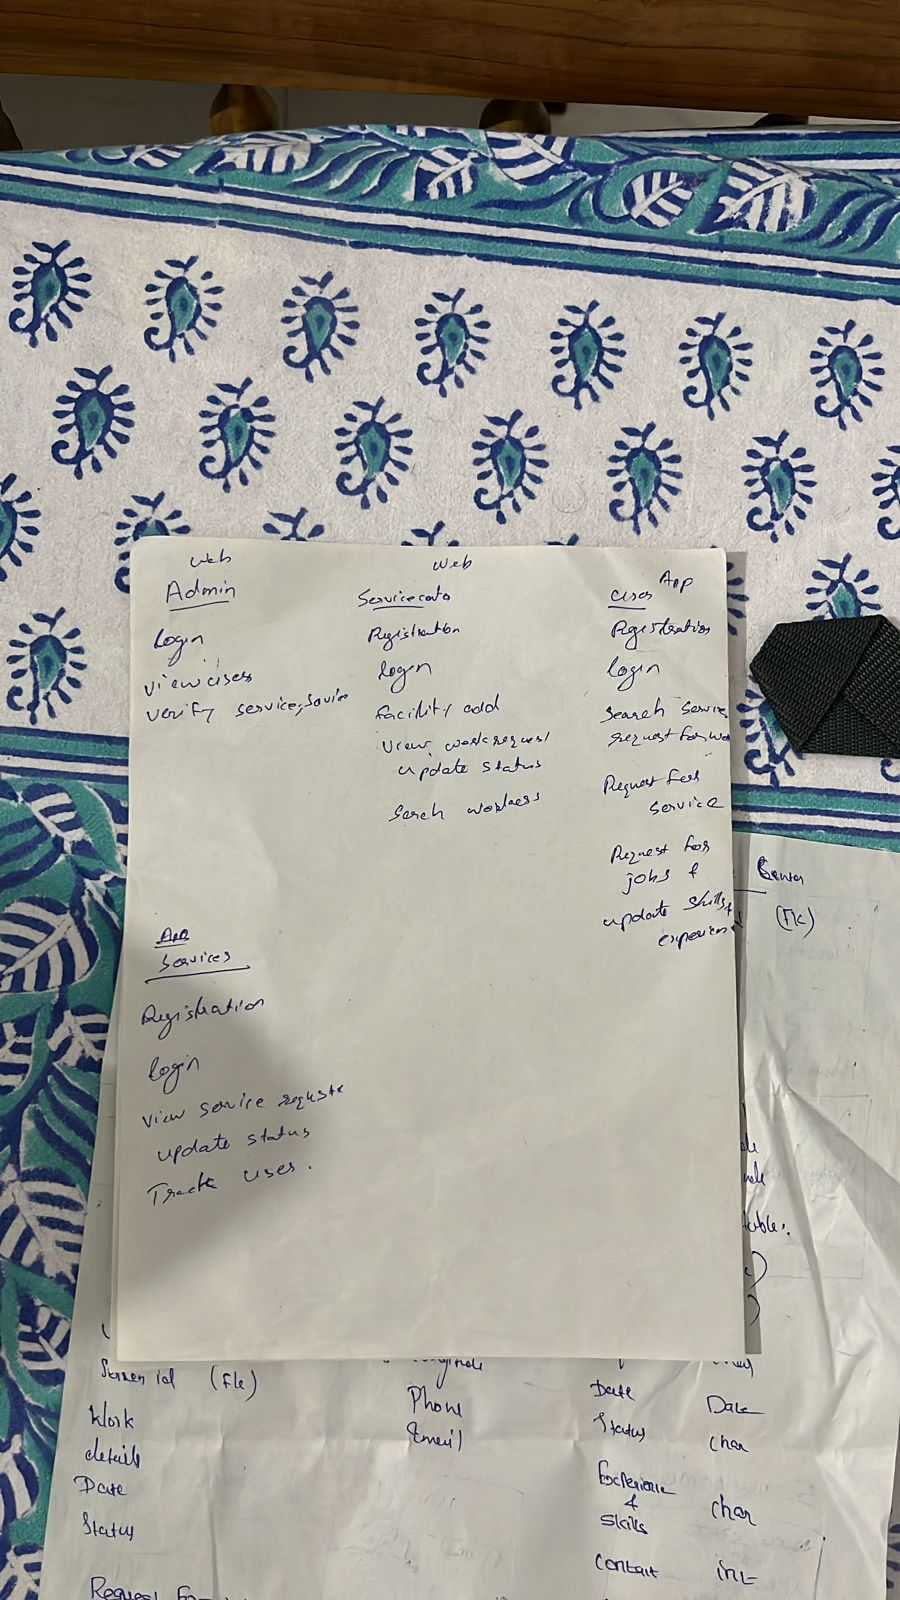 Web
Admin
Login
view users
verify service,
Web
Registration
login
facility add
view work request
update status
Serch workers
App
User
Registration
login
search service
request for
Request for
service
Request for
jobs &
update skills &
App
Services
Registration
login
view service requste
update status
Track user.
(FK)
(Fk)
Work
details
Date
Status
Phone
Email
Date
Date
Status
char
Experience
&
skills
char
contact
int
Request